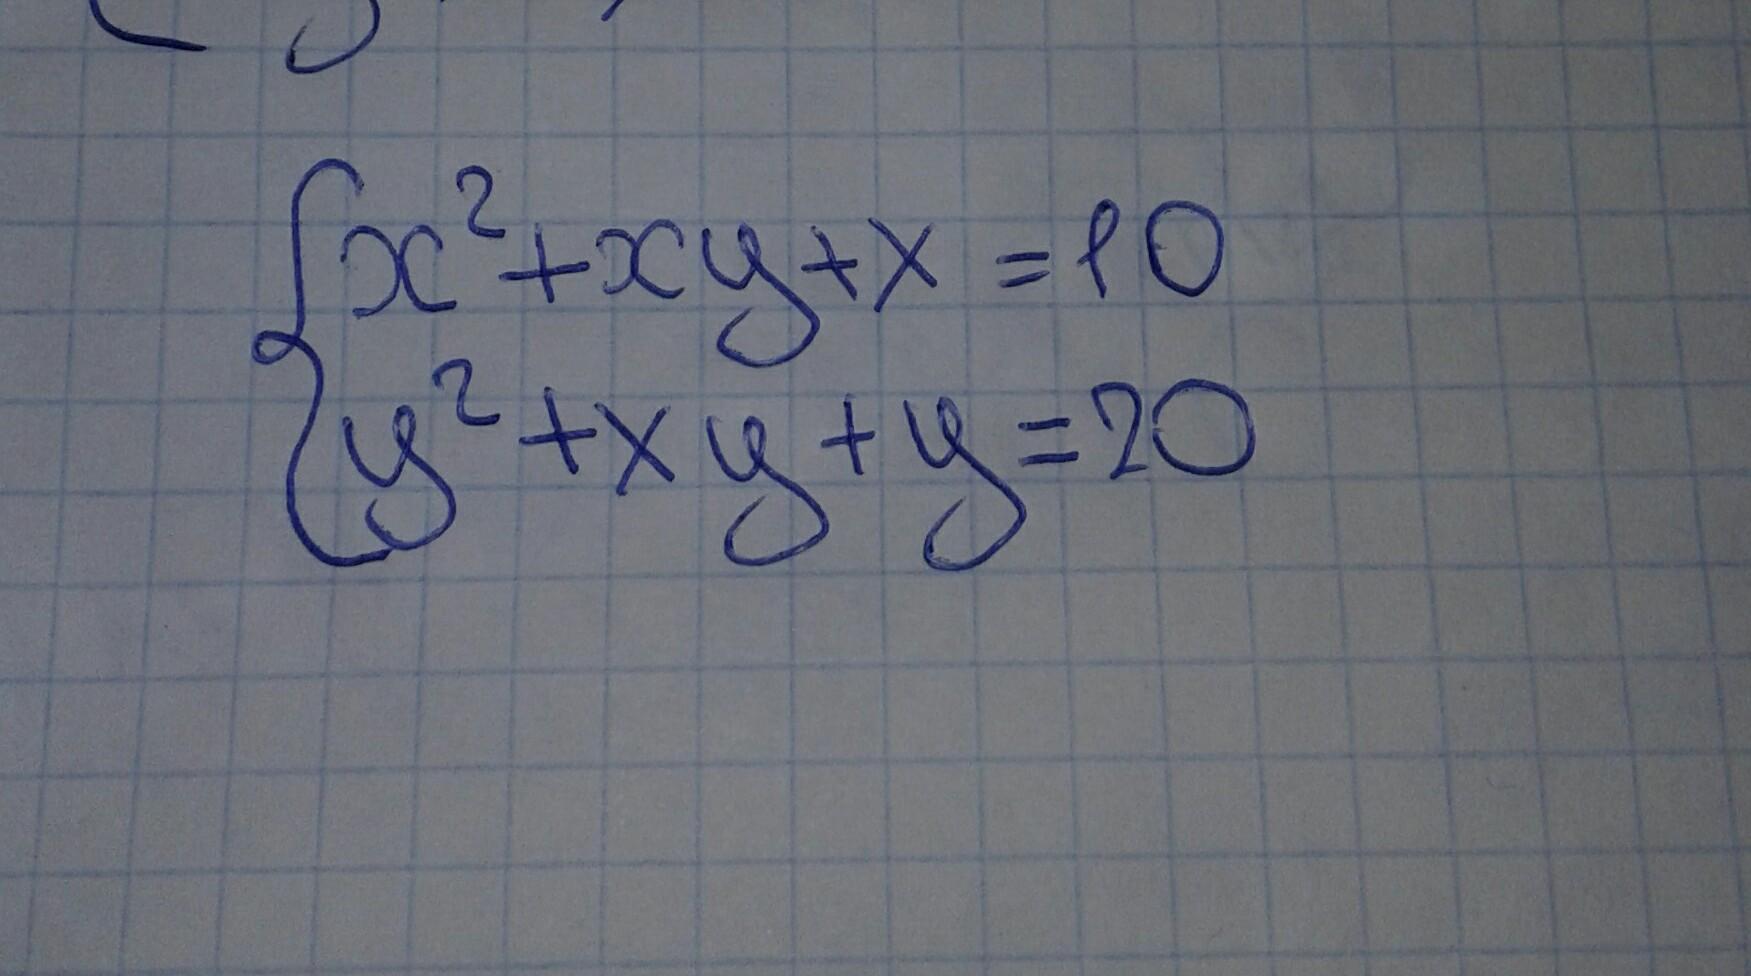 x² + xy + x = 10
y² + xy + y = 20